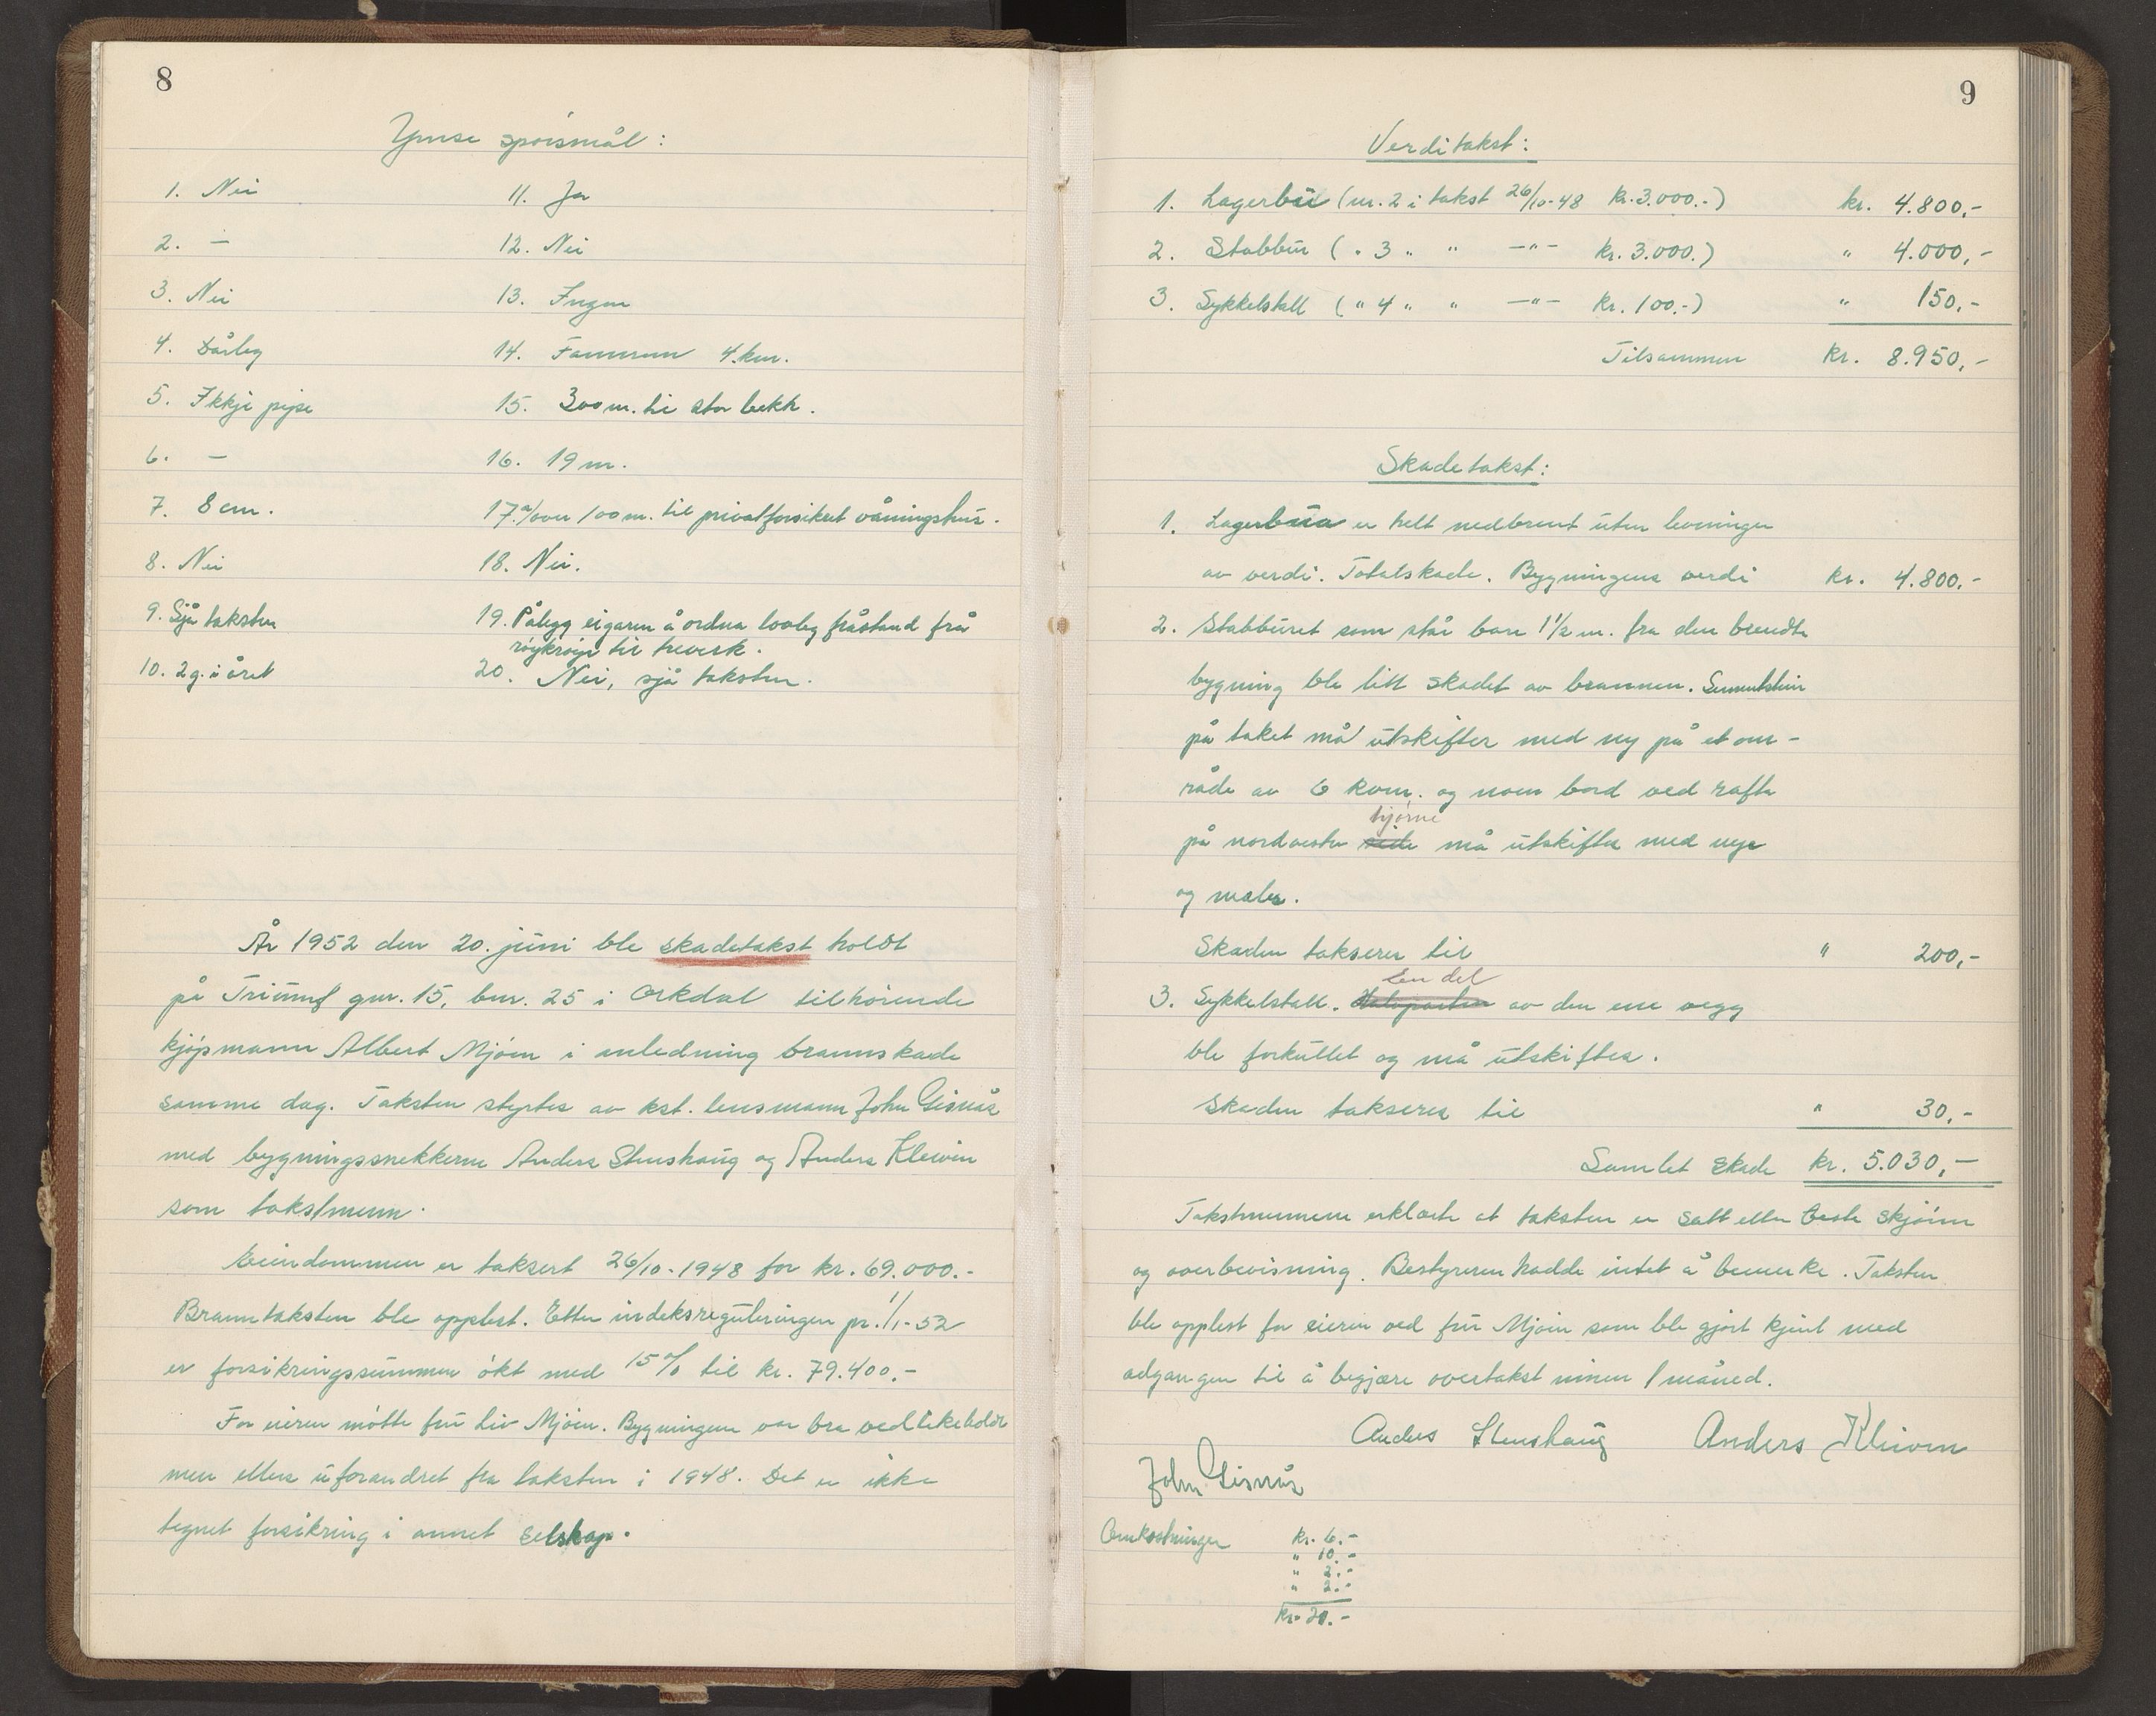 8
Ymse spörsmål:
1. Nei
2. —
3. Nei
4. Dårleg
5. Ikkje pipe
6. —
7. 8 cm.
8. Nei
9. Sjå taksten
10. 2 g. i året
11. Ja
12. Nei
13. Ingen
14. Fannrem 4 km.
15. 300 m. til stor bekk.
16. 19 m.
17. a/ over 100 m. til privatforsikret våningshus.
18. Nei.
19. Pålegg eigaren å ordna lovleg fråstand frå
röykrøyr til treverk.
20. Nei, sjå taksten.
År 1952 den 20. juni ble skadetakst holdt
på Triumf gnr. 15, bnr. 25 i Orkdal tilhörende
kjöpmann Albert Mjöen i anledning brannskade
samme dag. Taksten styrtes av kst. lensmann John Gisnås
med bygningssnekkerne Anders Stenshaug og Anders Kleiven
som takstmenn.
Eiendommen er taksert 26/10-1948 for kr. 69.000.-
Branntaksten ble opplest. Etter indeksreguleringen pr. 1/1-52
er forsikringssummen ökt med 15 % til kr. 79.400.-
For eieren mötte fru Liv Mjöen. Bygningene var bra vedlikeholdt
men ellers uforandret fra taksten i 1948. Det er ikke
tegnet forsikring i annet selskap.
9
Verditakst:
1. Lagerbu (nr. 2 i takst 26/10-48 kr. 3.000.-) kr. 4.800,-
2. Stabbur ( " 3 " " —"— kr. 3.000.) " 4.000,-
3. Sykkelstall ( " 4 " " —"— kr. 100.-) " 150,-
Tilsammen kr. 8.950,-
Skadetakst:
1. Lagerbua er helt nedbrent uten levninger
av verdi. Totalskade. Bygningens verdi kr. 4.800.-
2. Stabburet som står bare 1 1/2 m. fra den brendte
bygning ble litt skadet av brannen. Sementstein
på taket må utskiftes med ny på et om-
råde av 6 kvm. og noen bord ved rafte
hjørne
på nordvestre side må utskiftes med nye
og males.
Skaden takseres til " 200,-
En del
3. Sykkelstall. Halvparten av den ene vegg
ble forkullet og må utskiftes.
Skaden takseres til " 30,-
Samlet skade kr. 5.030,-
Takstmennene erklærte at taksten er satt etter beste skjönn
og overbevisning. Bestyreren hadde intet å bemerke. Taksten
ble opplest for eieren ved fru Mjöen som ble gjort kjent med
adgangen til å begjære overtakst innen 1 måned.
Anders Stenshaug Anders Kleiven
John Gisnås
Omkostninger kr. 6.-
" 10.-
" 2.-
" 2.-
kr. 20.-